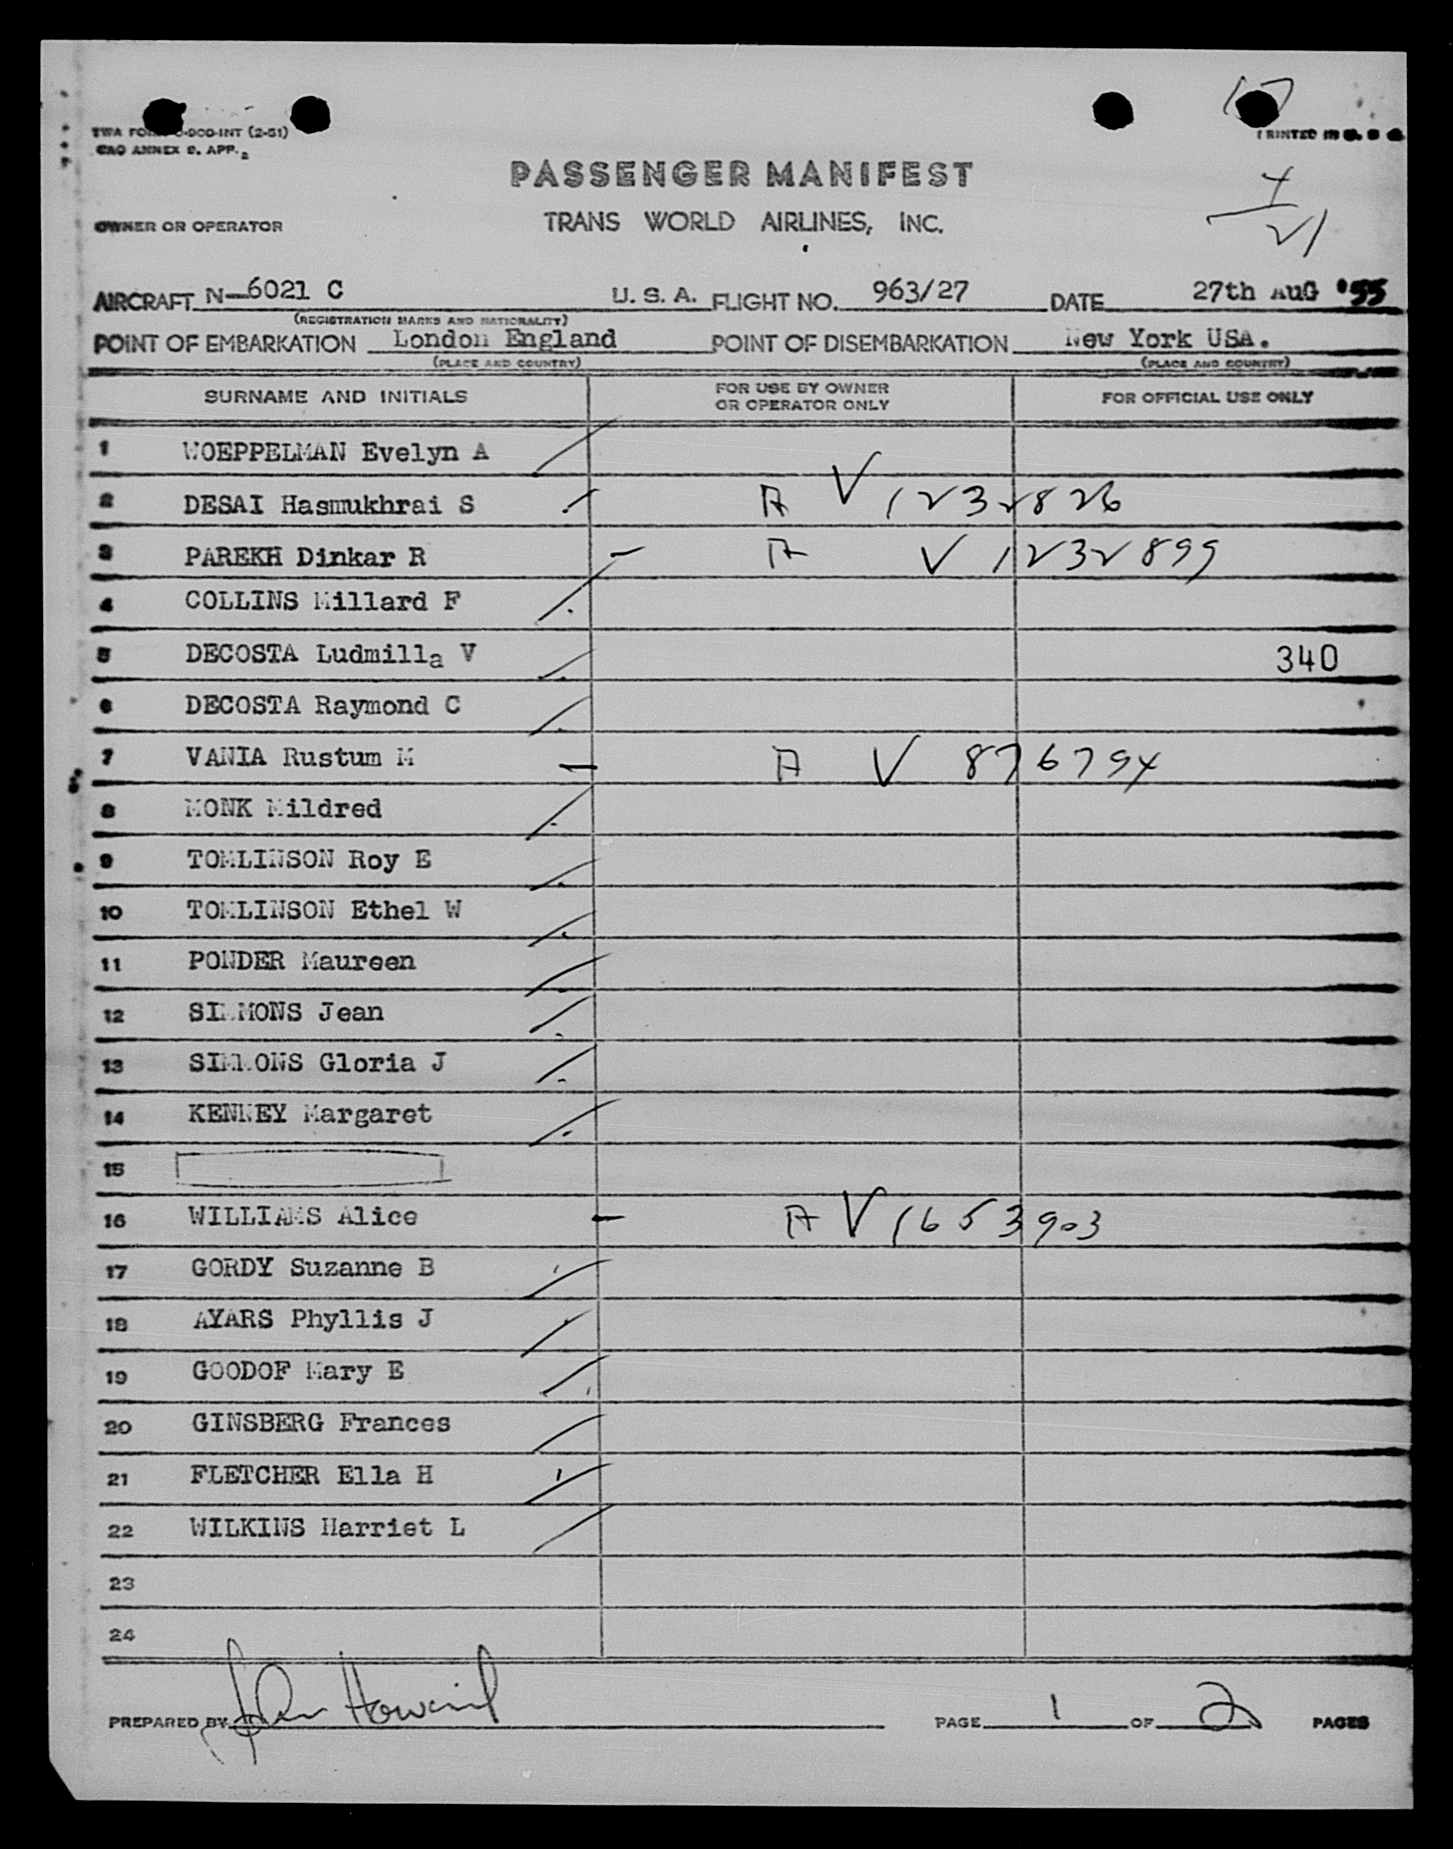 17
TWA FORM O-000-INT (2-51)
CAO ANNEX 9. APP. 2
PRINTED IN U. S. A.
PASSENGER MANIFEST
4
21
OWNER OR OPERATOR TRANS WORLD AIRLINES, INC.
AIRCRAFT N-6021 C U. S. A. FLIGHT NO. 963/27 DATE 27th AUG '55
(REGISTRATION MARKS AND NATIONALITY)
POINT OF EMBARKATION London England POINT OF DISEMBARKATION New York USA.
(PLACE AND COUNTRY) (PLACE AND COUNTRY)
SURNAME AND INITIALS FOR USE BY OWNER OR OPERATOR ONLY FOR OFFICIAL USE ONLY
1 WOEPPELMAN Evelyn A
2 DESAI Hasmukhrai S A V 1232826
3 PAREKH Dinkar R A V 1232899
4 COLLINS Millard F
5 DECOSTA Ludmilla V 340
6 DECOSTA Raymond C
7 VANIA Rustum M A V 876794
8 MONK Mildred
9 TOMLINSON Roy E
10 TOMLINSON Ethel W
11 PONDER Maureen
12 SIMMONS Jean
13 SIMMONS Gloria J
14 KENNEY Margaret
15
16 WILLIAMS Alice A V 1653903
17 GORDY Suzanne B
18 AYARS Phyllis J
19 GOODOF Mary E
20 GINSBERG Frances
21 FLETCHER Ella H
22 WILKINS Harriet L
23
24
PREPARED BY John Howard PAGE 1 OF 2 PAGES